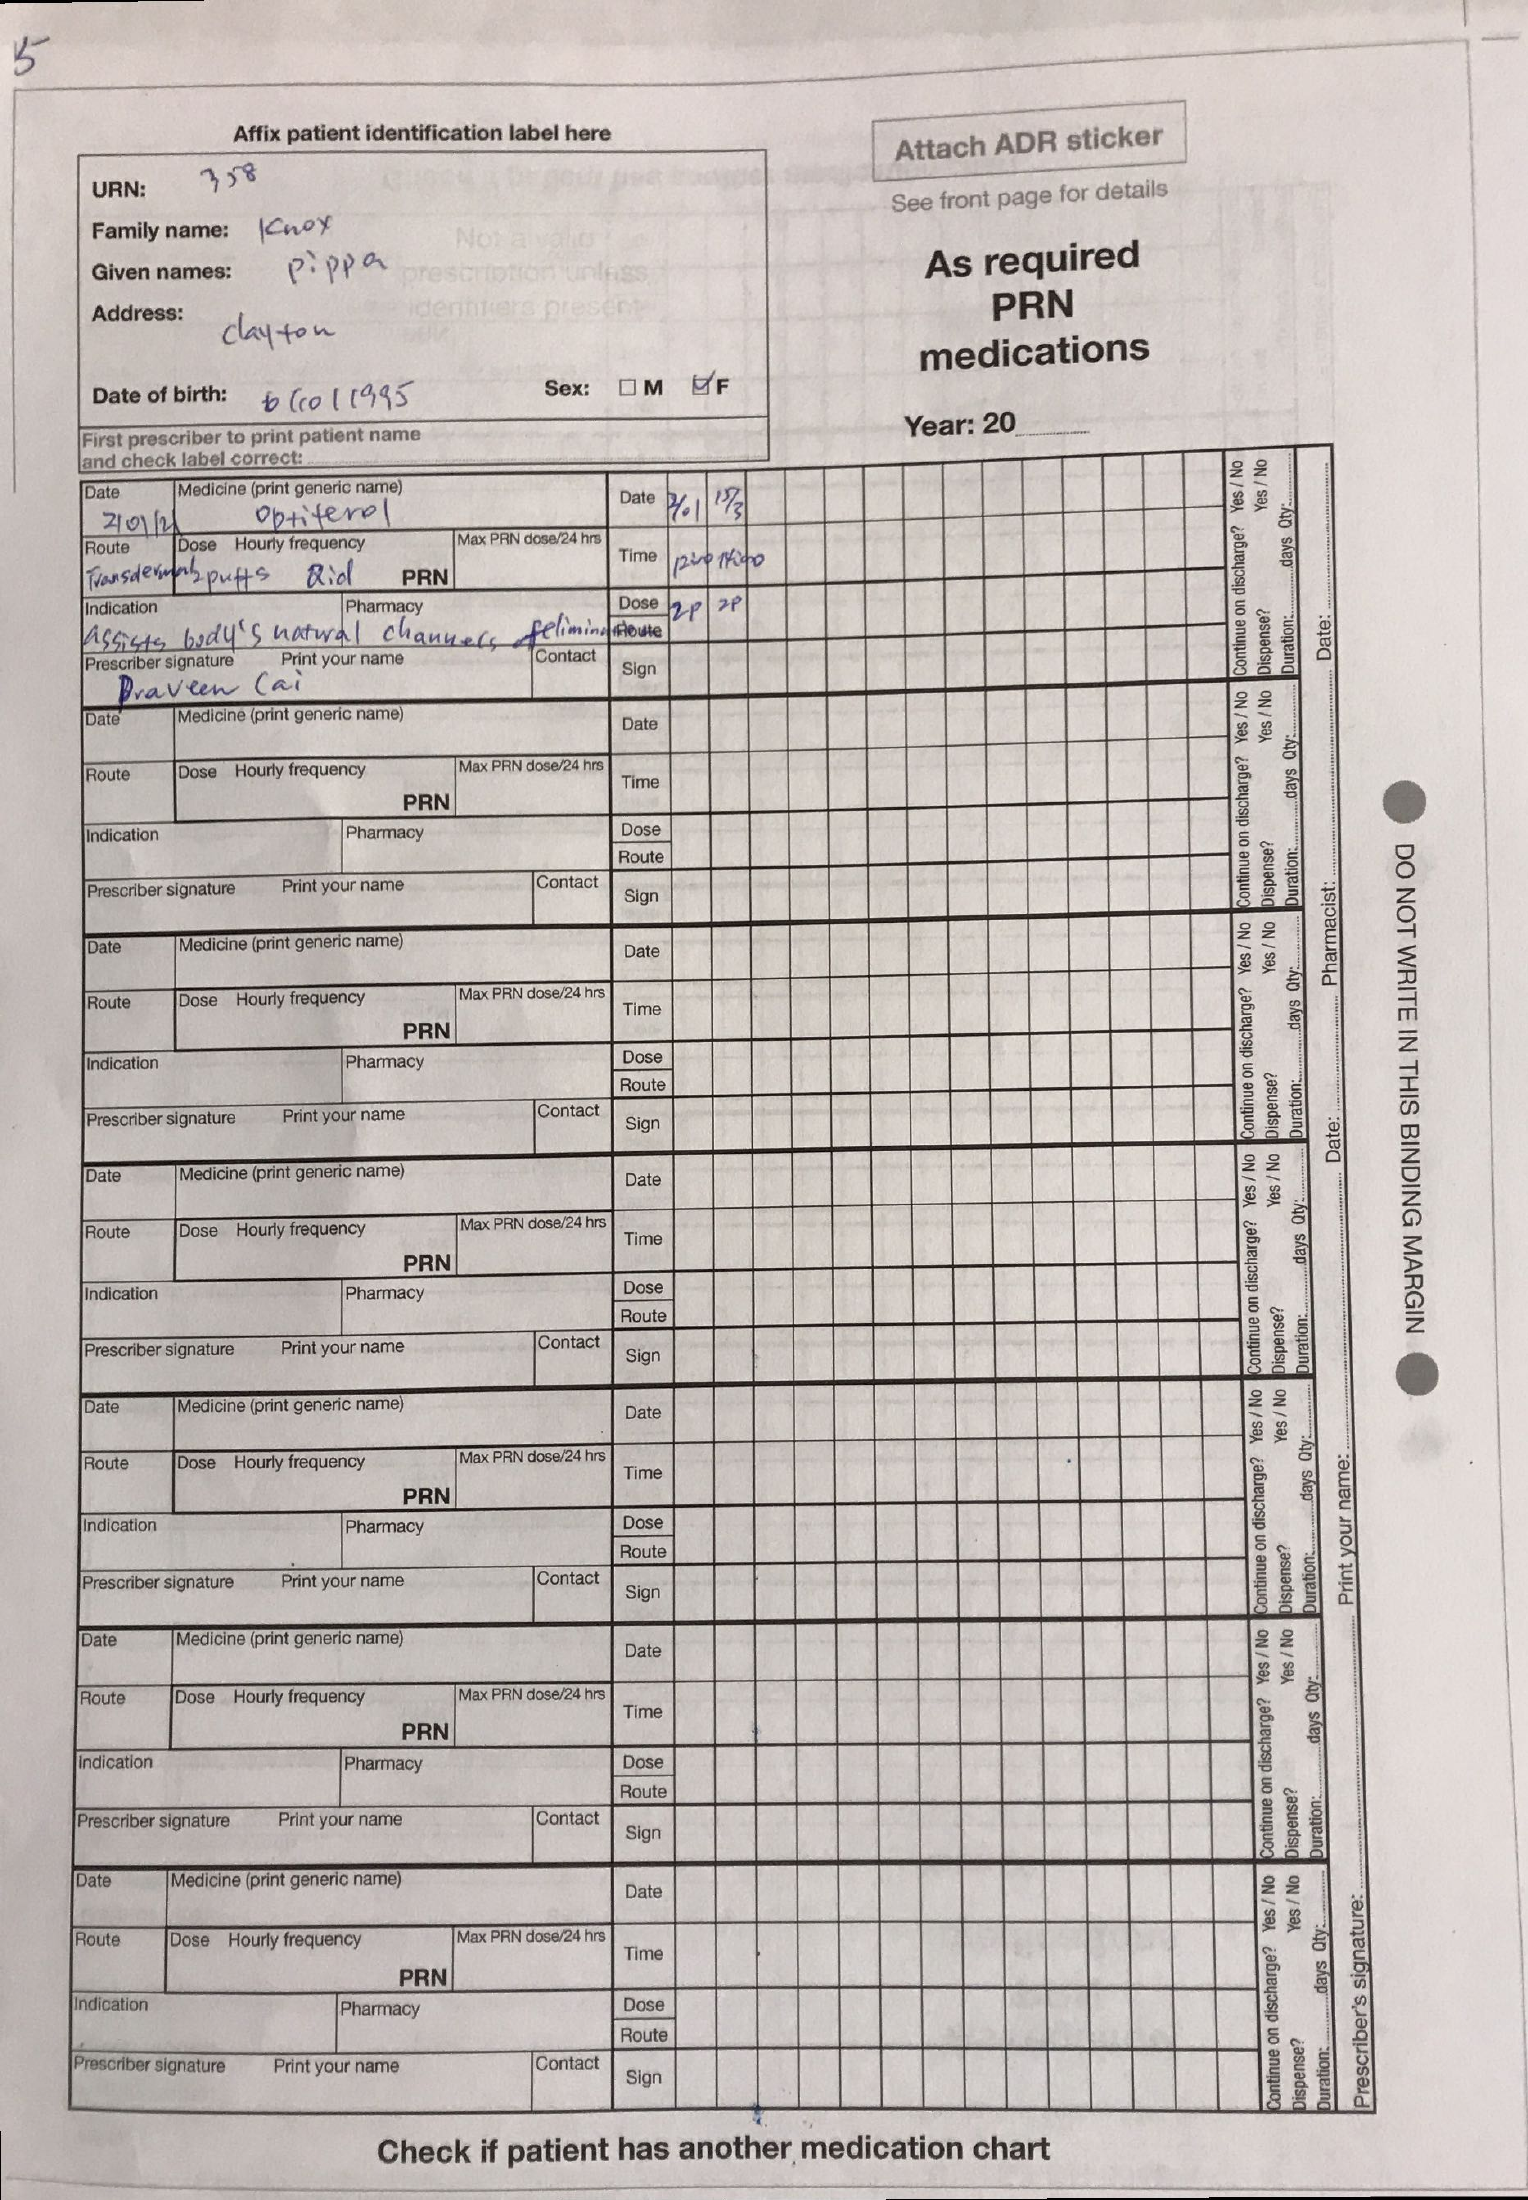 5
Affix patient identification label here
URN: 358
Family name: Knox
Given names: pippa
Address: clayton
Date of birth: 6/10/1995 Sex: M F
First prescriber to print patient name
and check label correct:
Attach ADR sticker
See front page for details
As required
PRN
medications
Year: 20
Date Medicine (print generic name) Date
2/01/21 Optiferol 2/01 15/3
Route Dose Hourly frequency Max PRN dose/24 hrs Time
Transdermal 2puffs Qid PRN
Indication Pharmacy Dose 2P 2P
Assists body's natural channels of Route
Prescriber signature Print your name Contact Sign
Praveen Cai
Continue on discharge? Yes / No
Dispense? Yes / No
Duration: days Qty:
Date Medicine (print generic name) Date
Route Dose Hourly frequency Max PRN dose/24 hrs Time
PRN
Indication Pharmacy Dose
Route
Prescriber signature Print your name Contact Sign
Continue on discharge? Yes / No
Dispense? Yes / No
Duration: days Qty:
Date Medicine (print generic name) Date
Route Dose Hourly frequency Max PRN dose/24 hrs Time
PRN
Indication Pharmacy Dose
Route
Prescriber signature Print your name Contact Sign
Continue on discharge? Yes / No
Dispense? Yes / No
Duration: days Qty:
Date Medicine (print generic name) Date
Route Dose Hourly frequency Max PRN dose/24 hrs Time
PRN
Indication Pharmacy Dose
Route
Prescriber signature Print your name Contact Sign
Continue on discharge? Yes / No
Dispense? Yes / No
Duration: days Qty:
Date Medicine (print generic name) Date
Route Dose Hourly frequency Max PRN dose/24 hrs Time
PRN
Indication Pharmacy Dose
Route
Prescriber signature Print your name Contact Sign
Continue on discharge? Yes / No
Dispense? Yes / No
Duration: days Qty:
Date Medicine (print generic name) Date
Route Dose Hourly frequency Max PRN dose/24 hrs Time
PRN
Indication Pharmacy Dose
Route
Prescriber signature Print your name Contact Sign
Continue on discharge? Yes / No
Dispense? Yes / No
Duration: days Qty:
Date Medicine (print generic name) Date
Route Dose Hourly frequency Max PRN dose/24 hrs Time
PRN
Indication Pharmacy Dose
Route
Prescriber signature Print your name Contact Sign
Continue on discharge? Yes / No
Dispense? Yes / No
Duration: days Qty:
Prescriber's signature: Print your name: Date: Pharmacist: Date:
DO NOT WRITE IN THIS BINDING MARGIN
Check if patient has another medication chart